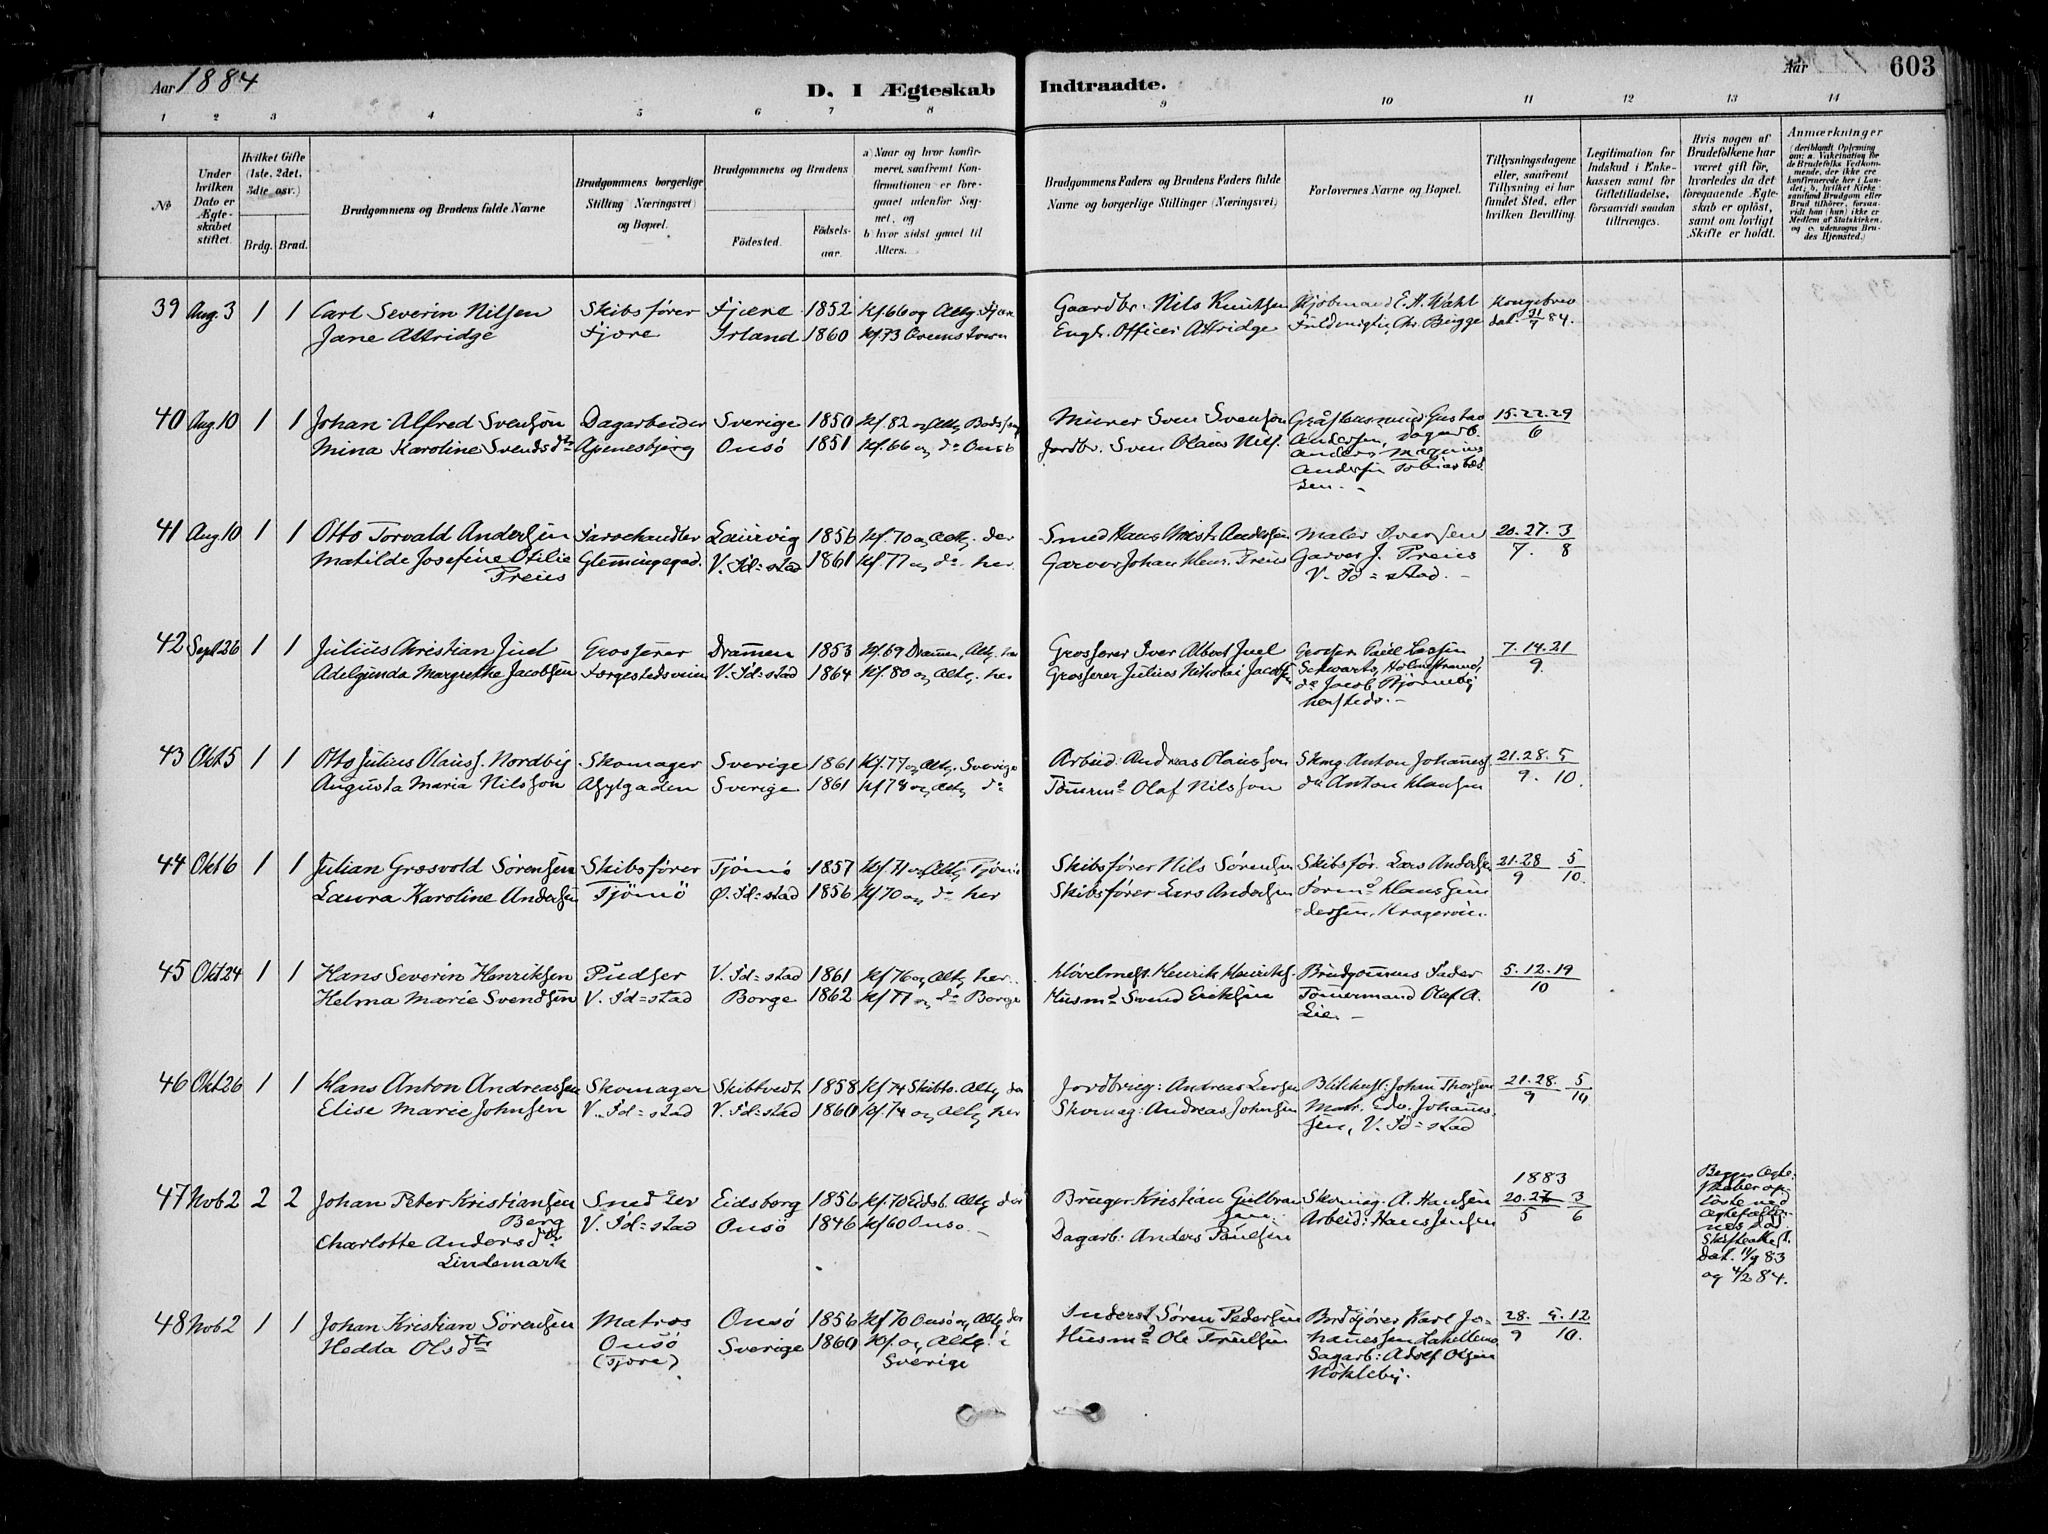 Aar 1884
D. I Ægteskab Indtraadte.
Aar 603
1 2 3 4 5 6 7 8 9 10 11 12 13 14
No
Under hvilken Dato er Ægteskabet stiftet.
Hvilket Gifte (1ste, 2det, 3die osv.)
Brdg. Brud.
Brudgommens og Brudens fulde Navne
Brudgommens borgerlige Stilling (Næringsvei) og Bopæl.
Brudgommens og Brudens
Födested. Födselsaar.
a) Naar og hvor konfirmeret, saafremt Konfirmationen er foregaaet udenfor Sognet, og
b) hvor sidst gaaet til Alters.
Brudgommens Faders og Brudens Faders fulde Navne og borgerlige Stillinger (Næringsvei)
Forlovernes Navne og Bopæl.
Tillysningsdagene eller, saafremt Tillysning ei har fundet Sted, efter hvilken Bevilling.
Legitimation for Indskud i Enkekassen samt for Giftetilladelse, forsaavidt saadan tiltrænges.
Hvis nogen af Brudefolkene har været gift för, hvorledes da det foregaaende Ægteskab er oplöst, samt om lovligt Skifte er holdt.
Anmærkninger
39 Aug. 3 1 1 Carl Severin Nilsen Skibsfører Fjære 1852 Kf. 66 og Altg. Fjære Gaardbr. Nils Knutsen Kjøbmand E. A. Wahl Kongebrev
Jane Attridge Fjære Irland 1860 Kf. 73 Engl. Officer Attridge Fuldmægtig Chr. Bugge dat. 31/7 84.
40 Aug. 10 1 1 Johan Alfred Svensson Dagarbeider Sverige 1850 Kf. 82 og Altg. Murer Sven Svensson Gustav 15. 22. 29
Mina Karoline Svendsdtr. Onsö 1851 Kf. 66 og do Onsö Jordbr. Sven Olaus Nils. Andersen, 6
Anders Magnus
Andersen
41 Aug. 10 1 1 Otto Torvald Andersen Farvehandler Laurvig 1856 Kf. 70 og Altg. der Smed Hans Andersen Maler Iversen 20. 27. 3
Matilde Josefine Otilie Glemmegad. V. Fd=stad 1861 Kf. 77 og do her. Garver Johan Henr. Preus Garver J. Preus 7. 8
Preus V. Fd=stad.
42 Sept 26 1 1 Julius Christian Juel Grosserer Drammen 1853 Kf. 69 Dramm, Altg. her Grosserer Iver Albert Juel 7. 14. 21
Adelgunda Margrethe Jacobsen Færgestedsveien V. Fd=stad 1864 Kf. 80 og Altg. her Grosserer Julius Nikolai Jacobsen Schwartz, Holmestrand, 9
do Jacob Bjørneby
43 Okt 5 1 1 Otto Julius Olauss. Nordby Skomager Sverige 1861 Kf. 77 og Altg. Sverige Arbeid. Andreas Olausson Skmg. Anton Johanness. 21. 28. 5
Augusta Maria Nilsson Asylgaden Sverige 1861 Kf 78 og Altg do Tömrmd Olaf Nilsson do Anton Klausen 9. 10.
44 Okt 6 1 1 Julian Græsvold Sörensen Skibsfører Tjömö 1857 Kf. 71 og Altg. Tjömö Skibsfører Nils Sörensen Skibsfør. Lars Andersen 21. 28 5
Laura Karoline Andersen Tjömö Ø. Fd=stad 1856 Kf. 70 og do her Skibsfører Lars Andersen Formd Klaus Gun- 9 10.
dersen, Kragerøen.
45 Okt 24 1 1 Hans Severin Henriksen Pudser V. Fd=stad 1861 Kf 76 og Altg her. Høvelmest. Henrik Henriks. Brudgommens Fader 5. 12. 19
Helma Marie Svendsen V. Fd=stad Borge 1862 Kf 77 og do Borge Husmd Svend Eriksen Tömmermand Olaf A. 10
Lie.
46 Okt 26 1 1 Hans Anton Andreassen Skomager Skibtvedt 1858 Kf 74 Skibtv. Altg der Jordbrug: Andreas Larsen Johan Thorsen 21. 28. 5
Elise Marie Johnsen V. Fd=stad V. Fd=stad 1860 Kf 74 og Altg her Skomag: Andreas Johnsen Matr. Edv. Johannes- 9 10
sen, V. Fd=stad
47 Nob 2 2 2 Johan Peter Kristiansen Smed Eidsberg 1856 Kf. 70 Eidsb. Altg der Bruger Kristian Gulbran- Skomag. A. Hansen 1883
Berg V. Fd=stad sen 20. 27 3
Charlotte Andersdtr. Onsö 1846 Kf 60 Onsø Dagarb: Anders Paulsen Arbeid: Hans Jensen 5 6
Lindemark
Begges Ægte-
skaber op-
löste ved
Ægtefæller-
nes död
Skifteattest.
Dat. 11/9 83
og 4/2 84.
48 Nob 2 1 1 Johan Kristian Sörensen Matros Onsö 1856 Kf 70 Onsø og Altg der Inderst Sören Pedersen Karl Jo- 28. 5. 12
Hedda Olsdtr Onsö Sverige 1860 Kf. og Altg. i Husmd Ole Truelsen hannessen 9 10.
(Fjære) Sverige Sagarb: Adolf Olsen
Nökleby.